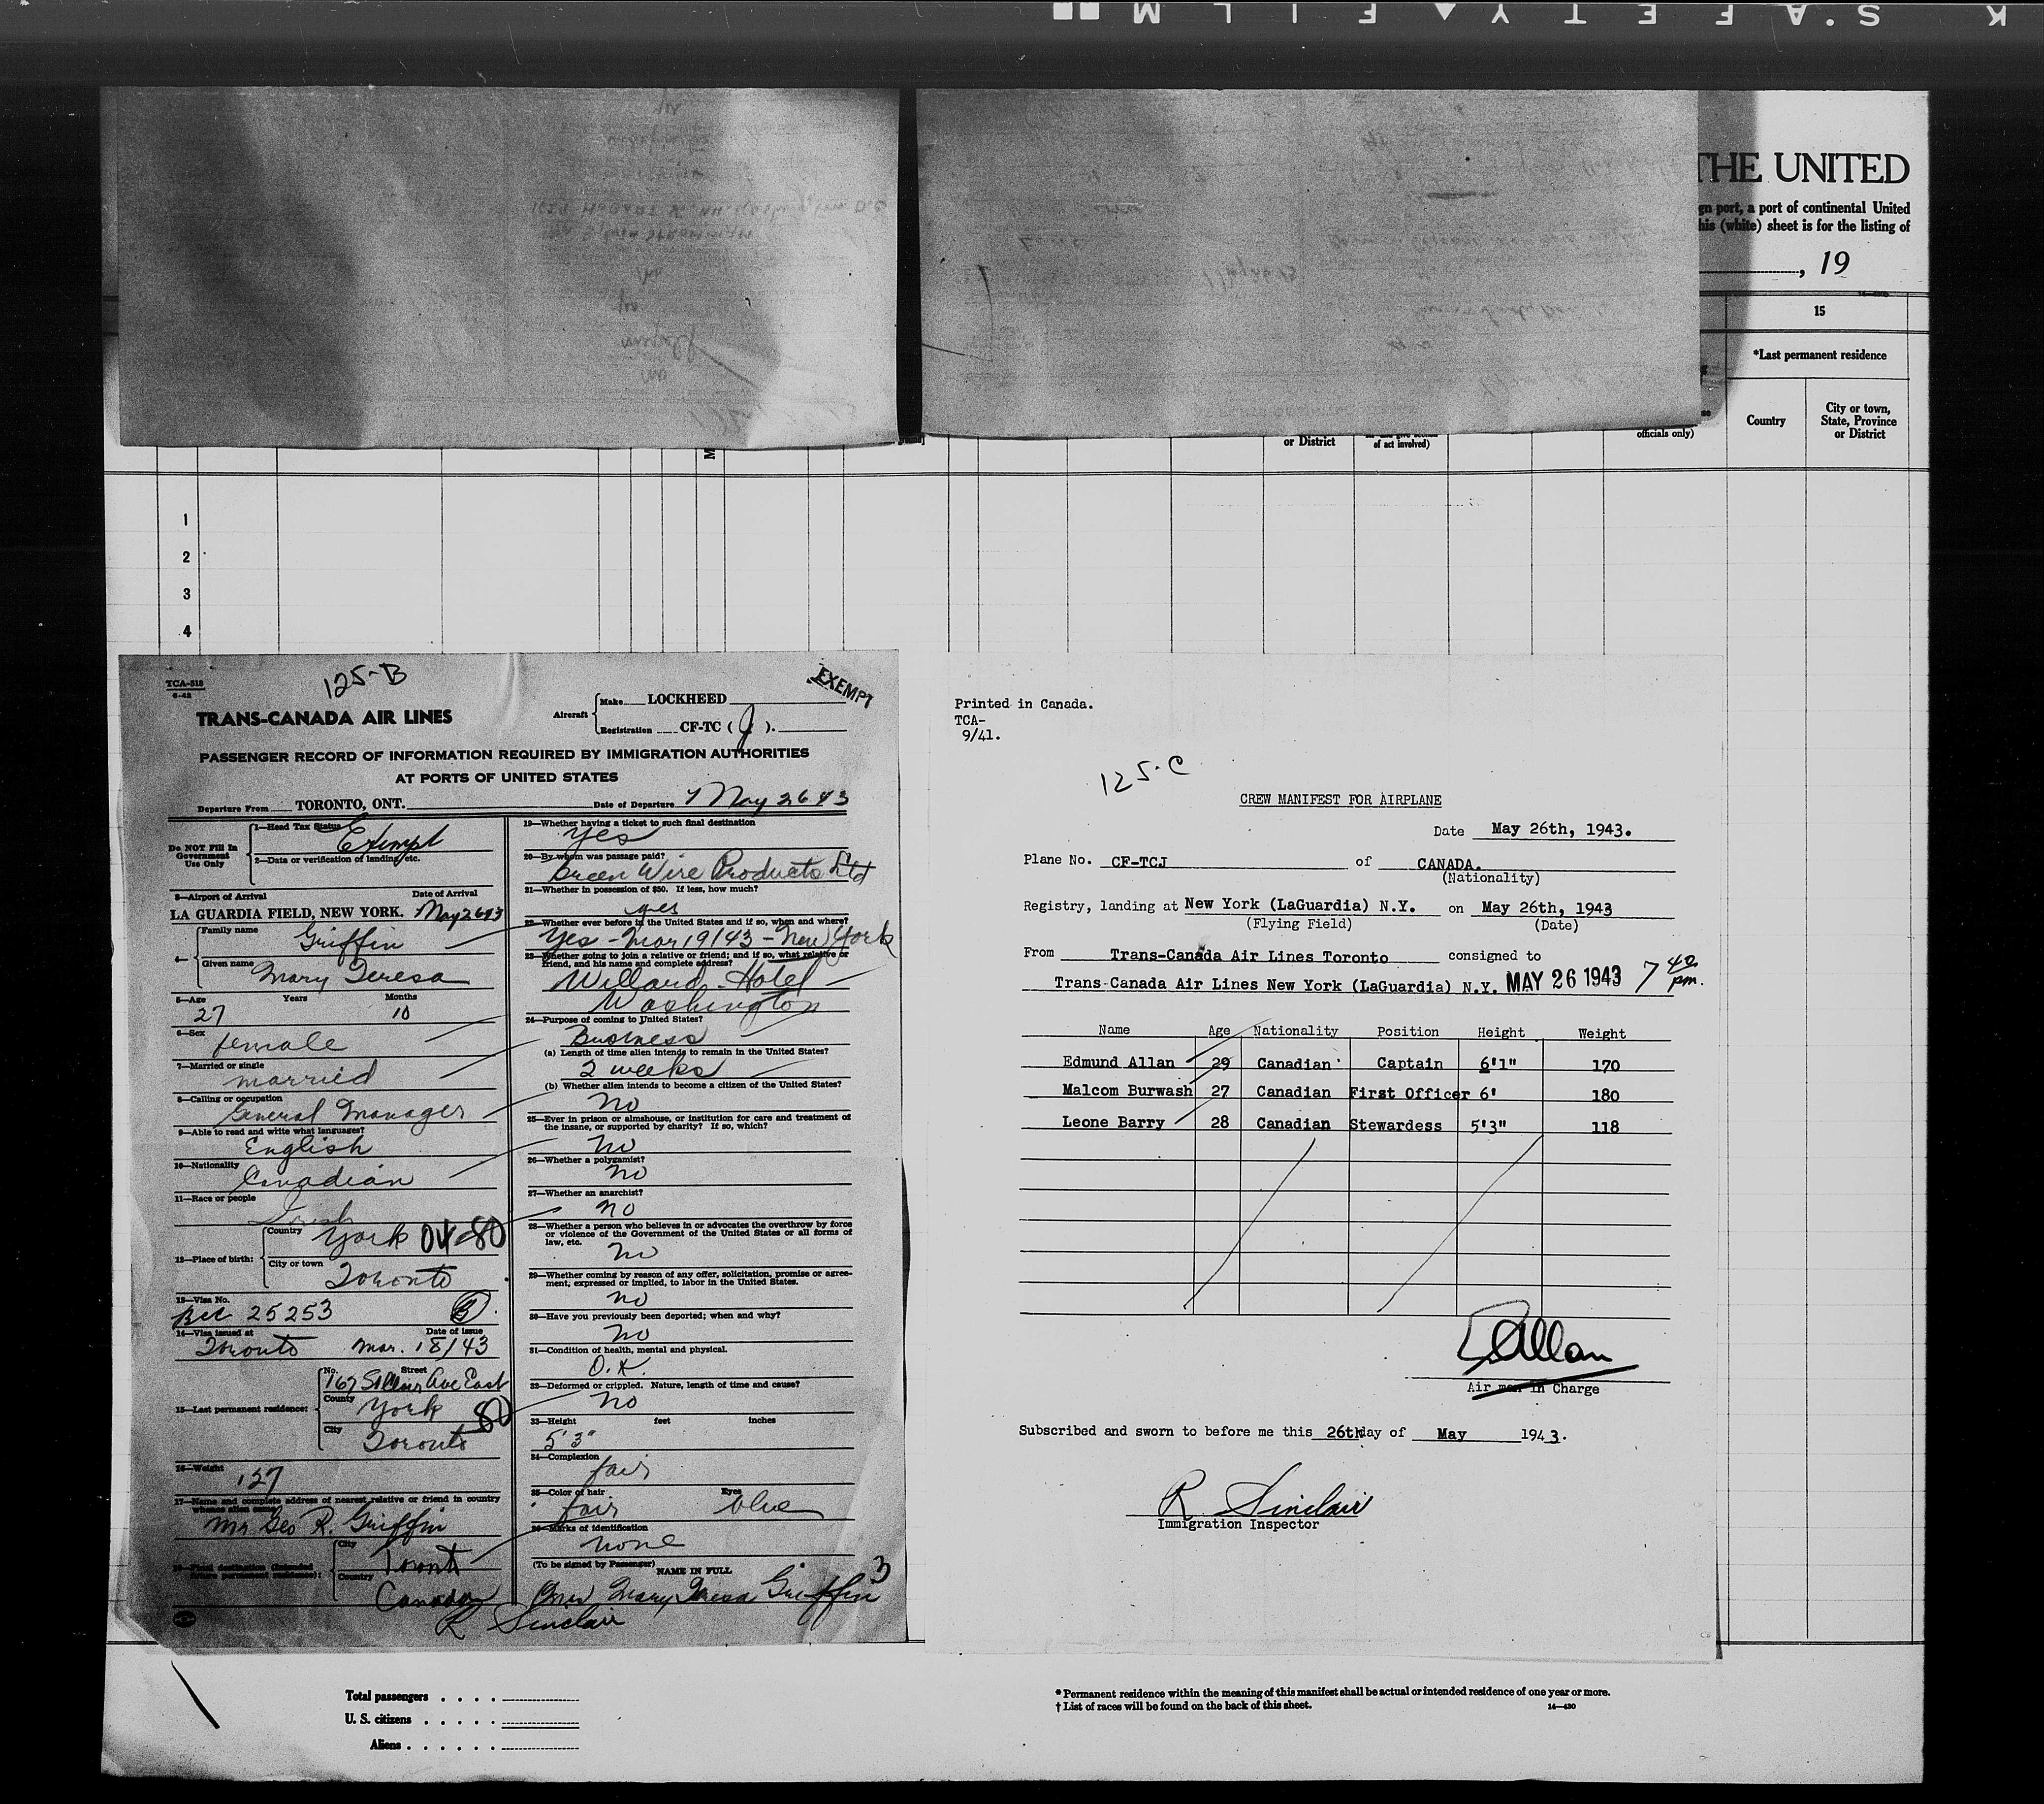 K S'AFETY ▲ FILM
THE UNITED
gn port, a port of continental United
his (white) sheet is for the listing of
, 19
15
*Last permanent residence
Country
City or town,
State, Province
or District
officials only)
or District
of act involved)
1
2
3
4
TCA-518
6-42
125-B
EXEMPT
TRANS-CANADA AIR LINES
Aircraft
Make LOCKHEED
Registration CF-TC ( J ).
PASSENGER RECORD OF INFORMATION REQUIRED BY IMMIGRATION AUTHORITIES
AT PORTS OF UNITED STATES
Departure From TORONTO, ONT. Date of Departure May 26 43
Do NOT Fill In
Government
Use Only
1—Head Tax Status Exempt
2—Data or verification of landing, etc.
3—Airport of Arrival Date of Arrival
LA GUARDIA FIELD, NEW YORK. May 26 43
4—
Family name Griffin
Given name Mary Teresa
5—Age Years Months
27 10
6—Sex
female
7—Married or single
married
8—Calling or occupation
General Manager
9—Able to read and write what languages?
English
10—Nationality
Canadian
11—Race or people
Irish
12—Place of birth:
Country York 04-80
City or town
Toronto
13—Visa No.
Rec 25253
14—Visa issued at Date of issue
Toronto Mar. 18/43
15—Last permanent residence:
No. Street
167 St Clair Ave East
County
York 80
City
Toronto
16—Weight
127
17—Name and complete address of nearest relative or friend in country
whence alien came
Mr Geo R. Griffin
18—Final destination (Intended
future permanent residence):
City
Toronto
Country
Canada
19—Whether having a ticket to such final destination
Yes
20—By whom was passage paid?
Wire Products Ltd
21—Whether in possession of $50. If less, how much?
yes
22—Whether ever before in the United States and if so, when and where?
Yes - Mar 19/43 - New York
23—Whether going to join a relative or friend; and if so, what relative or
friend, and his name and complete address?
Willard Hotel
Washington
24—Purpose of coming to United States?
Business
(a) Length of time alien intends to remain in the United States?
2 weeks
(b) Whether alien intends to become a citizen of the United States?
No
25—Ever in prison or almshouse, or institution for care and treatment of
the insane, or supported by charity? If so, which?
No
26—Whether a polygamist?
No
27—Whether an anarchist?
no
28—Whether a person who believes in or advocates the overthrow by force
or violence of the Government of the United States or all forms of
law, etc.
no
29—Whether coming by reason of any offer, solicitation, promise or agree-
ment, expressed or implied, to labor in the United States.
no
30—Have you previously been deported; when and why?
No
31—Condition of health, mental and physical.
O.K.
32—Deformed or crippled. Nature, length of time and cause?
No
33—Height feet inches
5'3"
34—Complexion
fair
35—Color of hair Eyes
fair blue
36—Marks of identification
none
(To be signed by Passenger)
NAME IN FULL
3
Mrs Mary Teresa Griffin
R Sinclair
Printed in Canada.
TCA-
9/41.
125-C
CREW MANIFEST FOR AIRPLANE
Date May 26th, 1943.
Plane No. CF-TCJ of CANADA.
(Nationality)
Registry, landing at New York (LaGuardia) N.Y. on May 26th, 1943
(Flying Field) (Date)
From Trans-Canada Air Lines Toronto consigned to
Trans-Canada Air Lines New York (LaGuardia) N.Y. MAY 26 1943 7 40 pm.
Name Age Nationality Position Height Weight
Edmund Allan 29 Canadian Captain 6'1" 170
Malcom Burwash 27 Canadian First Officer 6' 180
Leone Barry 28 Canadian Stewardess 5'3" 118
E Allan
Air man in Charge
Subscribed and sworn to before me this 26th day of May 1943.
R Sinclair
Immigration Inspector
Total passengers . . . .
U. S. citizens . . . . .
Aliens . . . . . .
* Permanent residence within the meaning of this manifest shall be actual or intended residence of one year or more.
† List of races will be found on the back of this sheet. 14—430